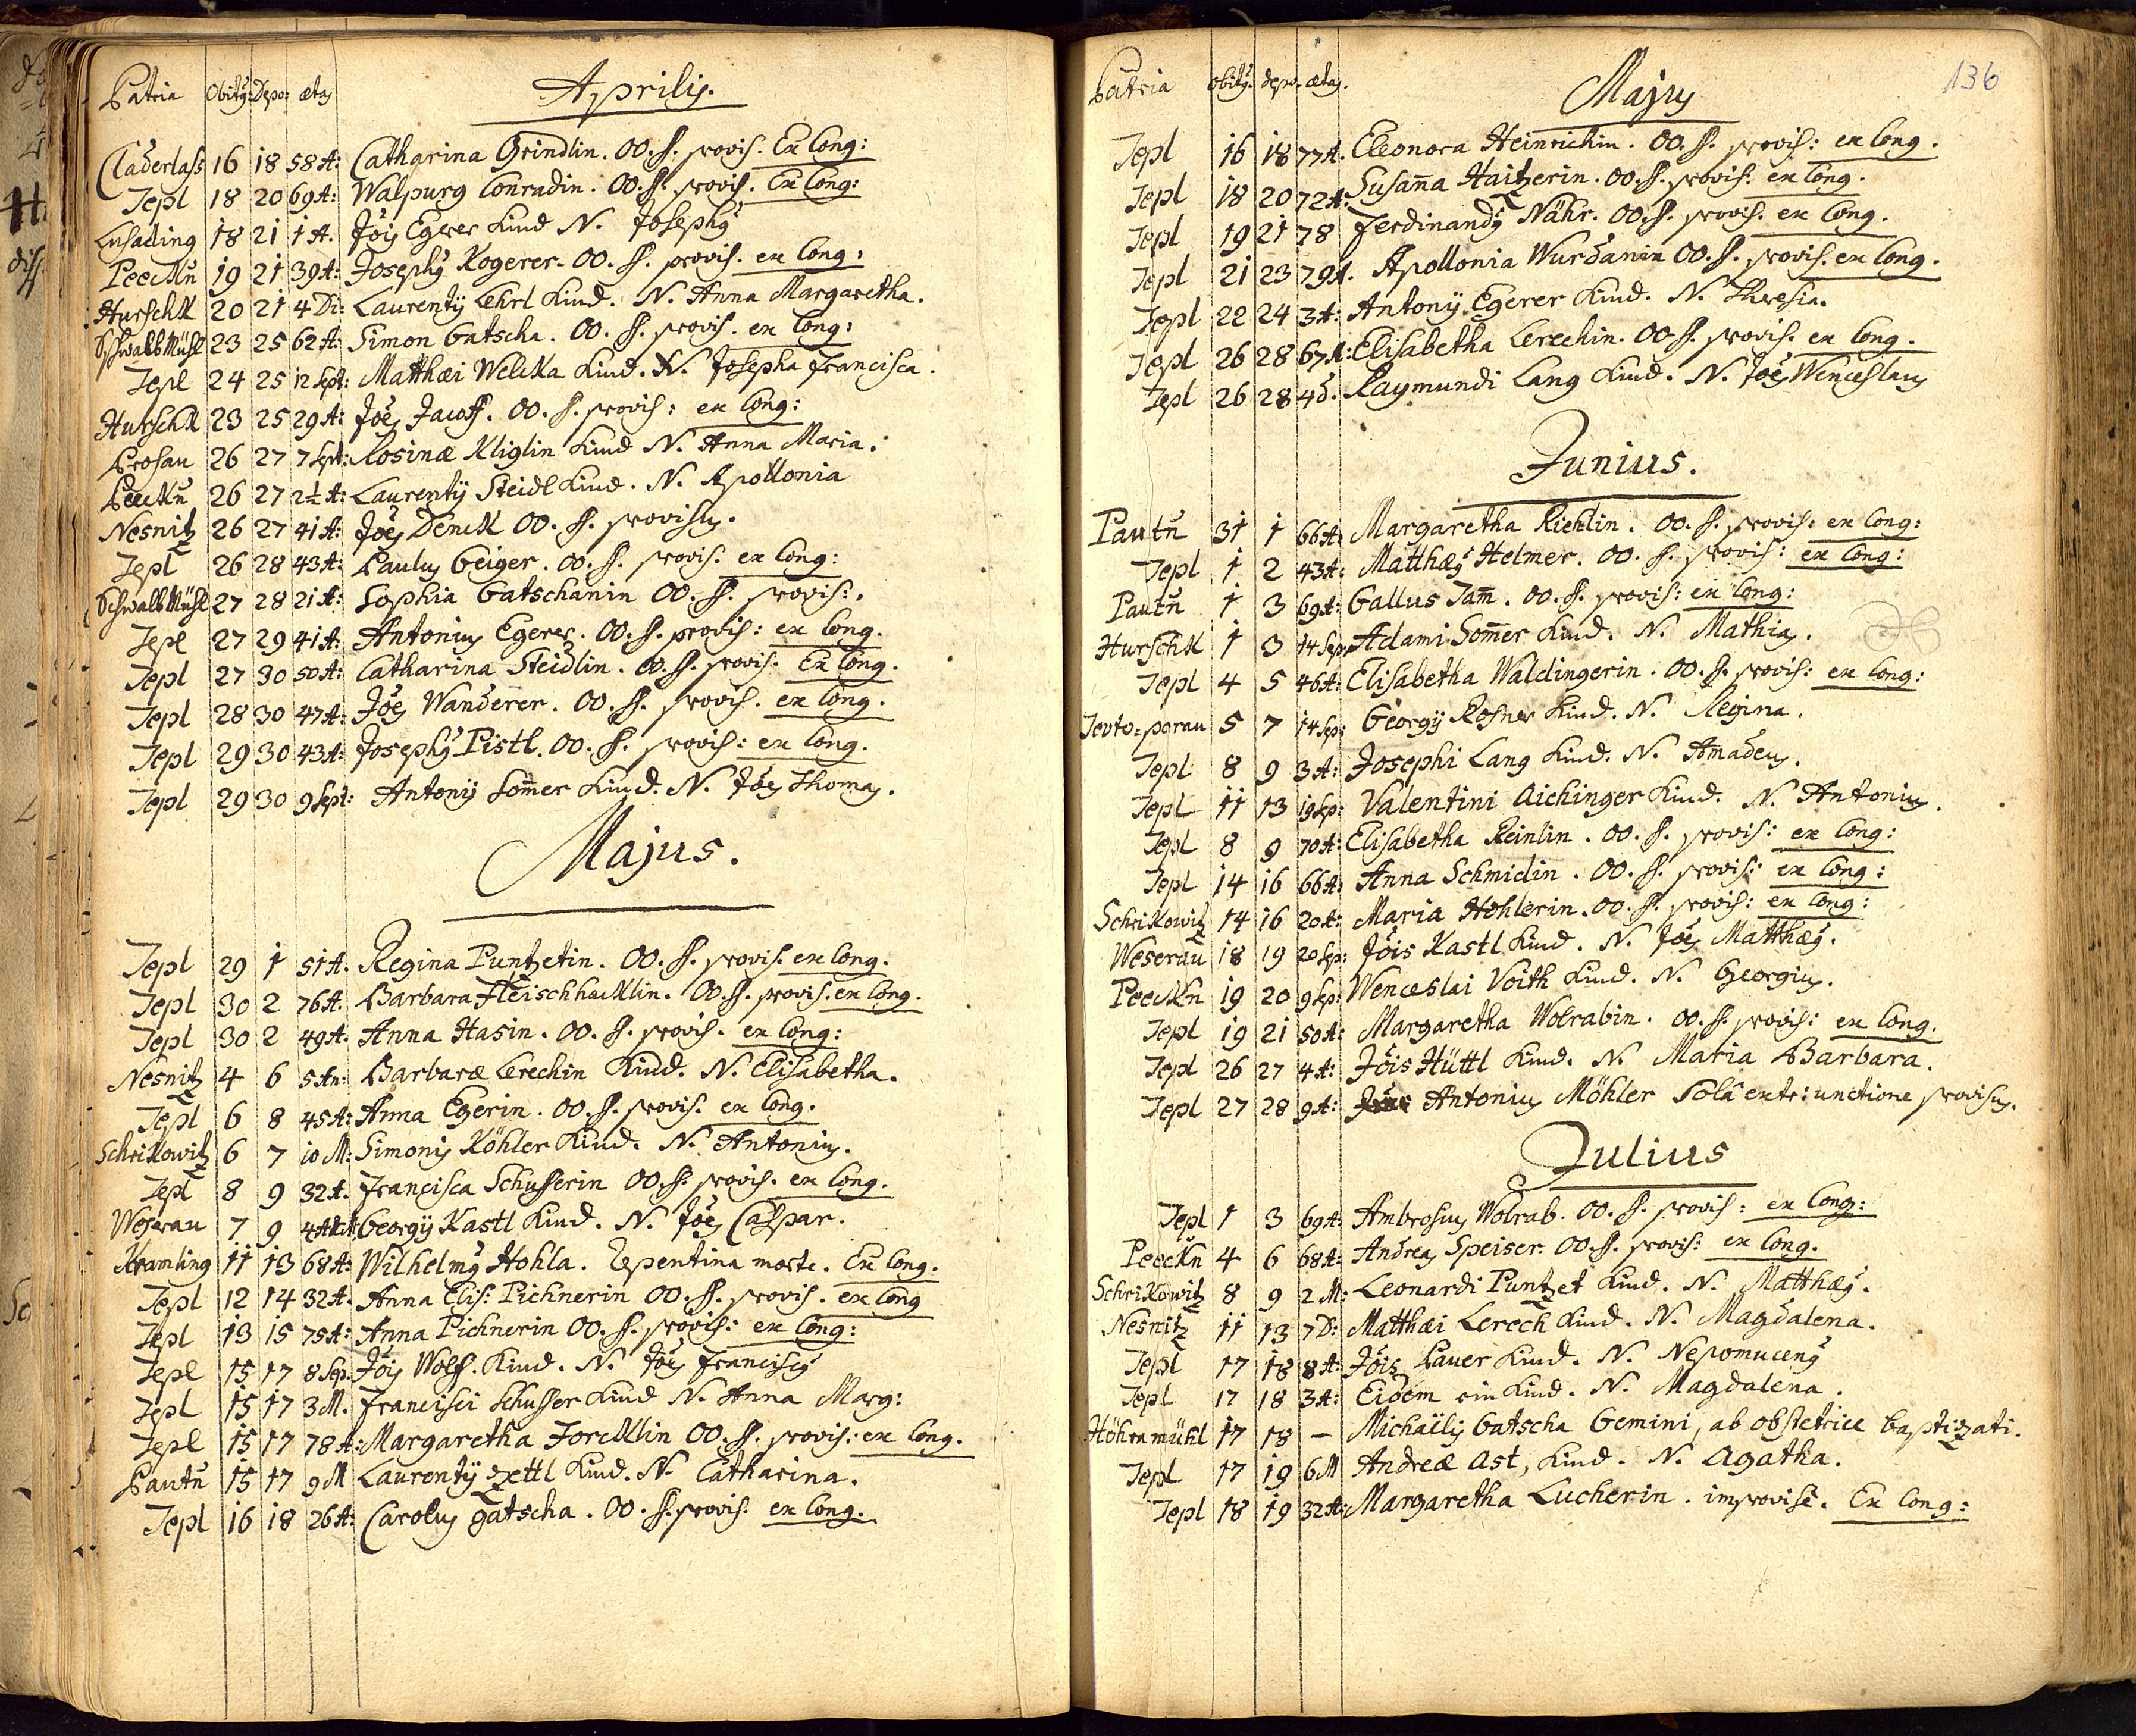 Patria Obitꝰ: Depo: ætas
Aprilis.
Claderlass 16 18 58 A: Catharina Grindlin. OO. S. provis. Ex Cong:
Tepl 18 20 69 A: Walpurg Conradin. OO. S. provis. Ex Cong:
Lusading 18 21 1 A. Jõis Egerer Kind N. Josephꝰ
Peeckñ 19 21 39 A: Josephꝰ Kogerer. OO. S. provis. ex Cong:
Hurschk 20 21 4 Di: Laurentÿ Lehrl Kind. N. Anna Margaretha.
Schwalb Mühl 23 25 62 A: Simon Gatscha. OO. S. provis. ex Cong:
Tepl 24 25 12 Sept: Matthæi Welcka Kind. N. Josepha Francisca.
Hurschk 23 25 29 A: Jões Jacoff. OO. S. provis: ex Cong:
Prosau 26 27 7 Sept: Rosinæ Kliglin Kind N. Anna Maria.
Peeckñ 26 27 2½ A: Laurentÿ Steidl Kind. N. Apollonia
Nesnitz 26 27 41 A: Jões Denck OO. S. provisus.
Tepl 26 28 43 A: Paulus Geiger. OO. S. provis. ex Cong:
Schwalb Mühl 27 28 21 A: Sophia Gatschanin OO. S. provis:.
Tepl 27 29 41 A. Antonius Egerer. OO. S. provis: ex Cong.
Tepl 27 30 50 A: Catharina Steidlin. OO. S. provis. Ex Cong.
Tepl 28 30 47 A: Jões Wanderer. OO. S. provis. ex Cong.
Tepl 29 30 43 A: Josephꝰ Pistl. OO. S. provis: ex Cong.
Tepl 29 30 9 Sept: Antonÿ Som̃er Kind. N. Jões Thomas.
Majus.
Tepl 29 1 51 A. Regina Puntzetin. OO. S. provis. ex Cong.
Tepl 30 2 76 A. Barbara Fleischhacklin. OO. S. provis. ex Cong.
Tepl 30 2 49 A. Anna Hasin. OO. S. provis. ex Cong:
Nesnitz 4 6 5 An: Barbaræ Lerechin Kind. N. Elisabetha.
Tepl 6 8 45 A: Anna Egerin. OO. S. provis. ex Cong.
Schrikowitz 6 7 10 M: Simonis Köhler Kind. N. Antonius.
Tepl 8 9 32 A. Francisca Schusserin OO. S. provis. ex Cong.
Weserau 7 9 Georgÿ Kastl Kind. N. Jões Caspar.
Kramling 11 13 68 A: Wilhelmꝰ Hohla. repentina morte. Ex Cong.
Tepl 12 14 32 A. Anna Elis: Pichnerin OO. S. provis. ex Cong
Tepl 13 15 75 A: Anna Pichnerin OO. S. provis: ex Cong:
Tepl 15 17 8 Sep. Jõis Wolff. Kind. N. Jões Franciscꝰ
Tepl 15 17 3 M. Francisci Schusser Kind N. Anna Marg:
Tepl 15 17 78 A: Margaretha Forcklin OO. S. provis: ex Cong.
Pautñ 15 17 9 M Laurentÿ Zettl Kind. N. Catharina.
Tepl 16 18 26 A: Carolus Gatscha. OO. S. provis. ex Cong.
Patria Obitꝰ. depo. ætas.
Majus
136
Tepl 16 18 77 A. Eleonora Heinrichin. OO. S. provis: ex Cong.
Tepl 18 20 72 A: Susan̄a Haitzerin. OO. S. provis: ex Cong.
Tepl 19 21 78 Ferdinandꝰ Nähr. OO. S. provis. ex Cong.
Tepl 21 23 79 A. Apollonia Wurdanin OO. S. provis. ex Cong.
Tepl 22 24 3 A: Antonÿ Egerer Kind. N. Theresia.
Tepl 26 28 67 A: Elisabetha Lerechin. OO. S. provis. ex Cong.
Tepl 26 28 4 d. Raymundi Lang Kind. N. Jões Wenceslaus
Junius.
Pautñ 31 1 66 A: Margaretha Riehlin. OO. S. provis: ex Cong:
Tepl 1 2 43 A: Matthæꝰ Helmer. OO. S. provis: ex Cong:
Pautñ 1 3 69 A: Gallus Jam̃. OO. S. provis: ex Cong:
Hurschk 1 3 14 Sep: Adami Som̃er Kind. N. Mathias.
Tepl 4 5 46 A: Elisabetha Waldingerin. OO. S. provis: ex Cong:
5 7 14 Sep: Georgÿ Rosner Kind. N. Regina.
Tepl 8 9 3 A: Josephi Lang Kind. N. Amadeus.
Tepl 11 13 19 Sep: Valentini Aichinger Kind. N. Antonius.
Tepl 8 9 70 A: Elisabetha Reinlin. OO. S. provis: ex Cong:
Tepl 14 16 66 A: Anna Schmidin. OO. S. provis: ex Cong:
Schrikowitz 14 16 20 A: Maria Höhlerin. OO. S. provis: ex Cong:
Weserau 18 19 20 Sep: Jõis Kastl Kind. N. Jões Matthæꝰ.
Peeckn 19 20 9 Sep: Wenceslai Voith Kind. N. Georgius.
Tepl 19 21 50 A: Margaretha Wolrabin. OO. S. provis: ex Cong.
Tepl 26 27 4 A: Jõis Hüttl Kind. N. Maria Barbara.
Tepl 27 28 9 A: Antonius Möhler Solâ extr: unctione provisus.
Julius
Tepl 1 3 69 A: Ambrosius Wolrab. OO. S. provis: ex Cong:
Peeckn 4 6 68 A: Andreas Speiser. OO. S. provis: ex Cong.
Schrikowitz 8 9 2 M: Leonardi Puntzet Kind. N. Matthæꝰ.
Nesnitz 11 13 7 D: Matthæi Lerech Kind. N. Magdalena.
Tepl 17 18 8 A: Jõis Pauer Kind. N. Nepomucenꝰ
Tepl 17 18 3 A: Eidem ein Kind. N. Magdalena.
Höhenmühl 17 18 — Michaëlis Gatscha Gemini, ab obstetrice baptizati.
Tepl 17 19 6 M Andreæ Ast, Kind. N. Agatha.
Tepl 18 19 32 A: Margaretha Lucherin. improvisè. Ex Cong: